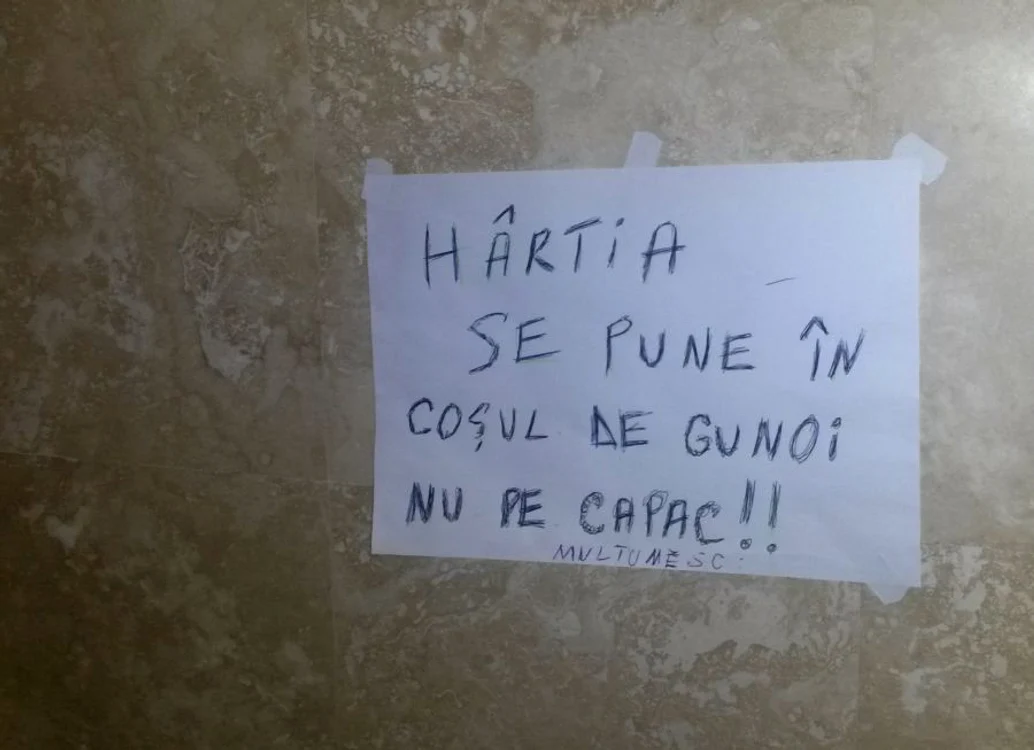 HÂRTiA
SE PUNE ÎN
COȘUL DE GUNOi
NU PE CAPAC!!
MULTUMESC.